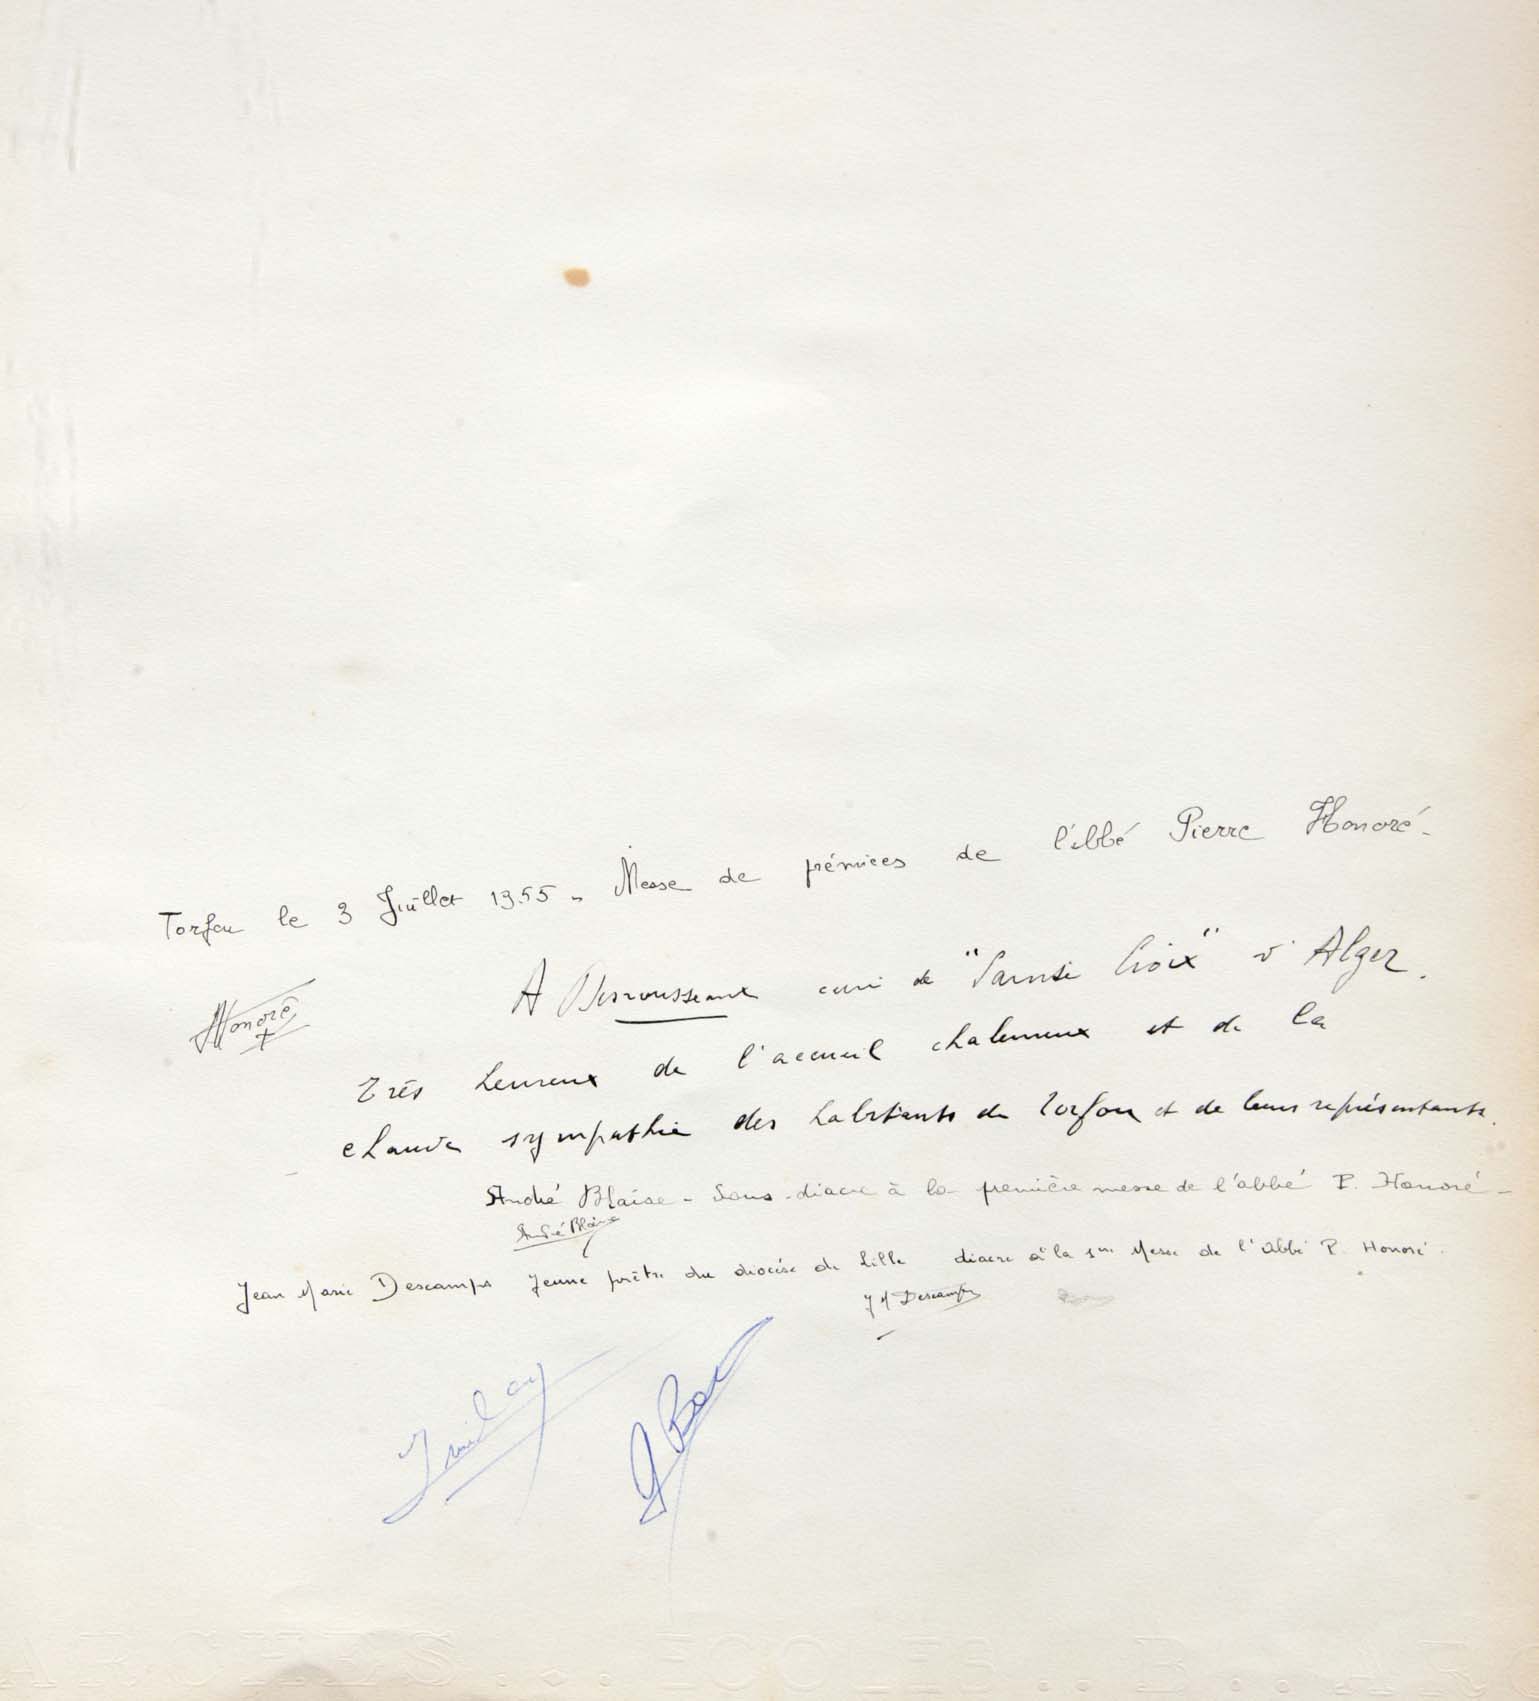 Torfou le 3 Juillet 1955 - Messe de prémices de l'abbé Pierre Honoré -
Honoré
A Desrousseaux curé de "Sainte Croix" d'Alger.
très heureux de l'accueil chaleureux et de la
chaude sympathie des habitants de Torfou et de leurs représentants.
André Blaise - Sous-diacre à la première messe de l'abbé P. Honoré -
André Blaise
Jean Marie Descamps jeune prêtre du diocèse de Lille diacre à la 1ère Messe de l'abbé P. Honoré.
J M Descamps
ARCHES